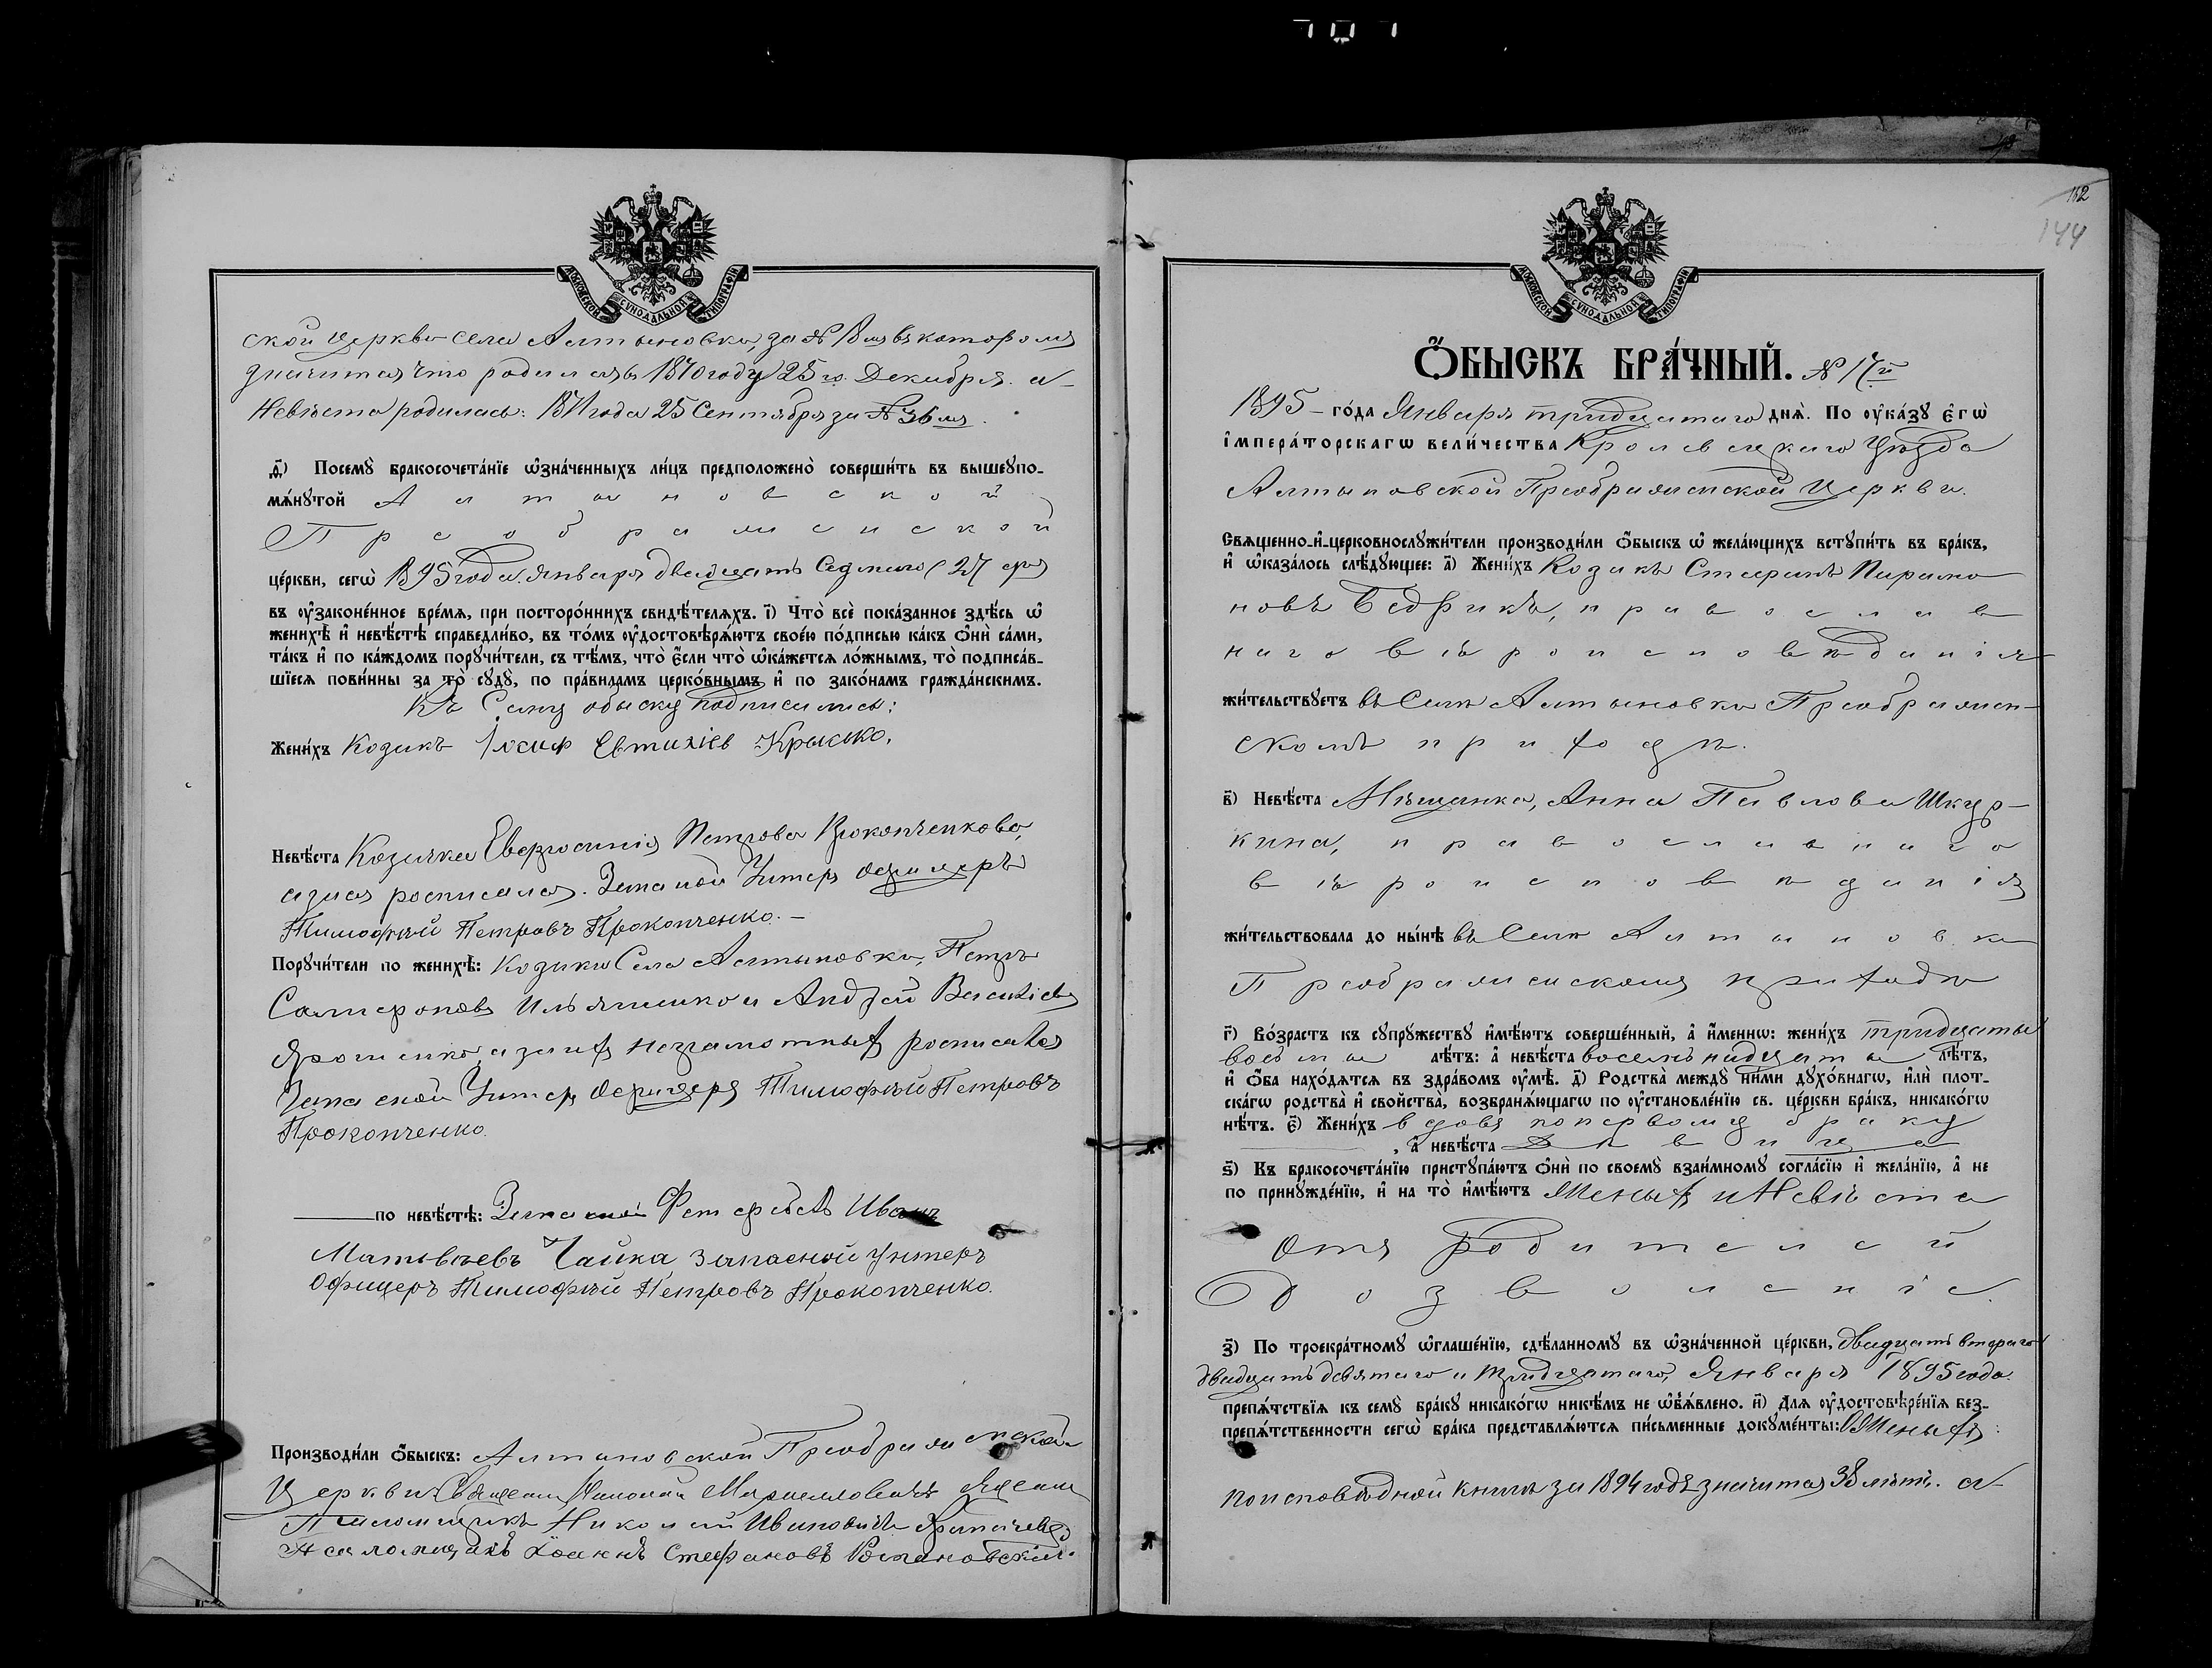 МОСКОВСКОЙ СѴНОДАЛЬНОЙ ТИПОГРАФІИ
ской церкви села Алтыновки, за № 18мъ въ которомъ
значится что родился въ 1870 году 25го Декабря. а
Невѣста родилась: 1871 года 25 Сентября за № 36мъ.
ѳ҃) Посемꙋ̀ бракосочета́нїе ѡ҆зна́ченныхъ ли́цъ предположено̀ соверши́ть въ вышеꙋпо-
мѧ́нꙋтой Алтыновской
Преображенской
це́ркви, сегѡ̀ 1895 года. Января двадцать Седьмаго (27 дня)
въ ᲂу҆зако́не́нное вре́мѧ, при посторо́ннихъ свидѣ́телѧхъ. і҃) Что̀ всѐ пока́занное здѣ́сь ѡ҆
женихѣ̀ и҆ невѣ́стѣ справедли́во, въ то́мъ ᲂу҆достовѣрѧ́ютъ свое́ю по́дписью ка́къ ѻ҆нѝ са́ми,
та́къ и҆ по ка́ждомъ порꙋчи́тели, съ тѣ́мъ, что̀ є҆́сли что̀ ѡ҆ка́жетсѧ ло́жнымъ, то̀ подписа́в-
шїесѧ пови́нны за то̀ сꙋдꙋ̀, по пра́виламъ церко́внымъ и҆ по зако́намъ гражда́нскимъ.
Къ Сему обыску подписались:
Жени́хъ Козакъ Іосиф Евтихіев Крысько.
Невѣ́ста Козачка Евфросинія Петрова Прокопченкова,
а за нея росписался. Запасной Унтеръ Офицеръ
Тимофѣй Петровъ Прокопченко. –
Порꙋчи́тели по женихѣ̀: Козаки Села Алтыновки, Петръ
Самсоновъ Ильяшенко и Андрей Васильевъ
Ярошенко а за ихъ неграмотныхъ росписался
Запасной Унтеръ Офицеръ Тимофѣй Петровъ
Прокопченко.
по невѣ́стѣ: Запасной Фетфебель Иванъ
Матвѣевъ Чайка запасной унтеръ
Офицеръ Тимофѣй Петровъ Прокопченко.
Производи́ли ѻ҆́быскъ: Алтыновской Преображенской
Церкви: Священ
Псаломщикъ Николай Ивановичъ
Псаломщикъ Іоаннъ Стефановъ
162
144
МОСКОВСКОЙ СѴНОДАЛЬНОЙ ТИПОГРАФІИ
Ѻ҆́БЫСКЪ БРА́ЧНЫЙ. № 17й
1895 – го́да Января тридцатаго днѧ̀. По ᲂу҆ка́зꙋ є҆гѡ̀
і҆мпера́торскагѡ вели́чества Кролевецкаго Уѣзда
Алтыновской Преображенской Церкви.
Свѧще́нно-и҆-церковнослꙋжи́тели производи́ли ѻ҆́быскъ ѡ҆ жела́ющихъ встꙋпи́ть въ бра́къ,
и҆ ѡ҆каза́лось слѣ́дꙋющее: а҃) Жени́хъ Козакъ Стефанъ Парамо
новъ Бедрикъ, православ
наго вѣроисповѣданія
жи́тельствꙋетъ въ Селѣ Алтыновки Преображен-
скомъ приходѣ.
в҃) Невѣ́ста Мѣщанка, Анна Павлова Шкур-
кина, православнаго
вѣроисповѣданія
жи́тельствовала до ны́нѣ въ Селѣ Алтыновки
Преображенскомъ приходѣ
г҃) Во́зрастъ къ сꙋпрꙋжествꙋ и҆мѣ́ютъ соверше́нный, а҆ и҆́меннѡ: жени́хъ тридцаты
восьмы лѣ́тъ: а҆ невѣ́ста восемьнадцаты лѣ́тъ,
и҆ ѻ҆́ба нахо́дѧтсѧ въ здра́вомъ ᲂу҆мѣ̀. д҃) Родства̀ междꙋ̀ ни́ми дꙋхо́внагѡ, и҆лѝ плот-
ска́гѡ родства̀ и҆ сво́йства̀, возбранѧ́ющагѡ по ᲂу҆становле́нїю св. це́ркви бра́къ, никако́гѡ
нѣ́тъ. є҃) Жени́хъ вдовъ по первому браку
, а҆ невѣ́ста дѣвица
ѕ҃) Къ бракосочета́нїю пристꙋпа́ютъ ѻ҆нѝ по своемꙋ̀ взаи́мномꙋ согла́сїю и҆ жела́нїю, а҆ не
по принꙋжде́нїю, и҆ на то̀ и҆мѣ́ютъ Женихъ и Невѣста
отъ родителей
Дозволеніе.
з҃) По троекра́тномꙋ ѡ҆глаше́нїю, сдѣ́ланномꙋ въ ѡ҆зна́ченной це́ркви, двадцать втораго
двадцать девятаго и тридцатаго, Января 1895 года.
препѧ́тствїѧ къ семꙋ̀ бра́кꙋ никако́гѡ никѣ́мъ не ѡ҆б̾ѧ́влено. и҃) Длѧ ᲂу҆достовѣре́нїѧ без-
препѧ́тственности сегѡ̀ бра́ка представлѧ́ютсѧ пи́сьменные докꙋме́нты: О Женихѣ:
по исповѣдной книгѣ за 1894 годъ значится 38 лѣтъ. а